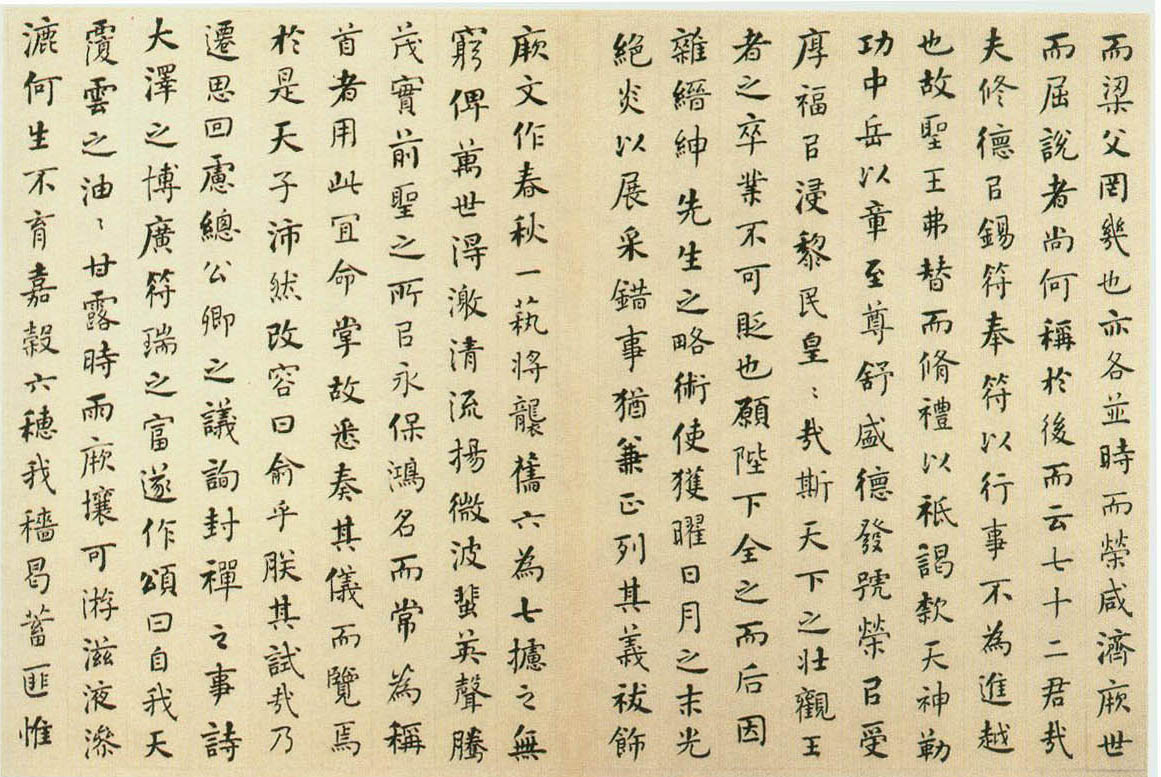 而梁父罔幾也亦各並時而榮咸濟厥世
而屈說者尚何稱於後而云七十二君哉
夫修德㠯錫符奉符以行事不為進越
也故聖王弗替而脩禮以祗謁款天神勒
功中岳以章至尊舒盛德發號榮㠯受
厚福㠯浸黎民皇〻哉斯天下之壯觀王
者之卒業不可貶也願陛下全之而后因
雜縉紳先生之略術使獲曜日月之末光
絕炎以展采錯事猶兼正列其義祓飾
厥文作春秋一蓺將襲舊六為七攄之無
窮俾萬世得激清流揚微波蜚英聲騰
茂實前聖之所㠯永保鴻名而常為稱
首者用此宜命掌故悉奏其儀而覽焉
於是天子沛然改容曰俞乎朕其試哉乃
遷思回慮總公卿之議詢封禪之事詩
大澤之博廣符瑞之富遂作頌曰自我天
覆雲之油〻甘露時雨厥壤可游滋液滲
漉何生不育嘉穀六穗我穡曷蓄匪惟